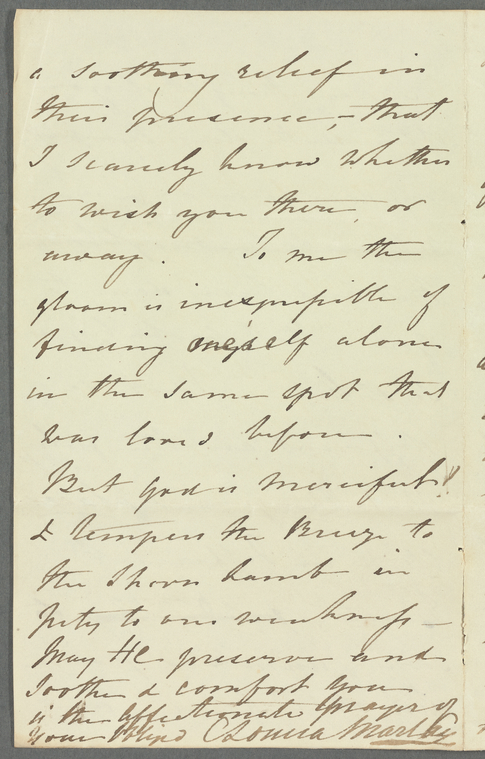 a soothing relief in
their presence, - that
I scarcely know whether
to wish you there, or
away. To me the
gloom is inexpressible of
finding oneself alone
in the same spot that
was loved before.
But God is merciful!
& tempers the Breeze to
the Shorn Lamb in
pity to our weakness -
May He preserve and
soothe & comfort you
is the affectionate prayer of
your Louisa Marlay